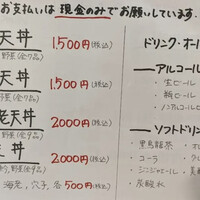 お支払いは 現金のみでお願いしています.
天丼 1,500円(税込)
野菜(全7品)
天丼 1,500円(税込)
野菜(全9品)
老天丼 2,000円(税込)
野菜(全7品)
丼 2,000円(税込)
野菜(全9品)
海老, 穴子, 各500円(税込)
ドリンク・オー
アルコール
・生ビール
・瓶ビール
・ノンアルコール
ソフトドリン
・烏龍茶 ・オ
・コーラ ・ク
・ジンジャエール ・
・炭酸水